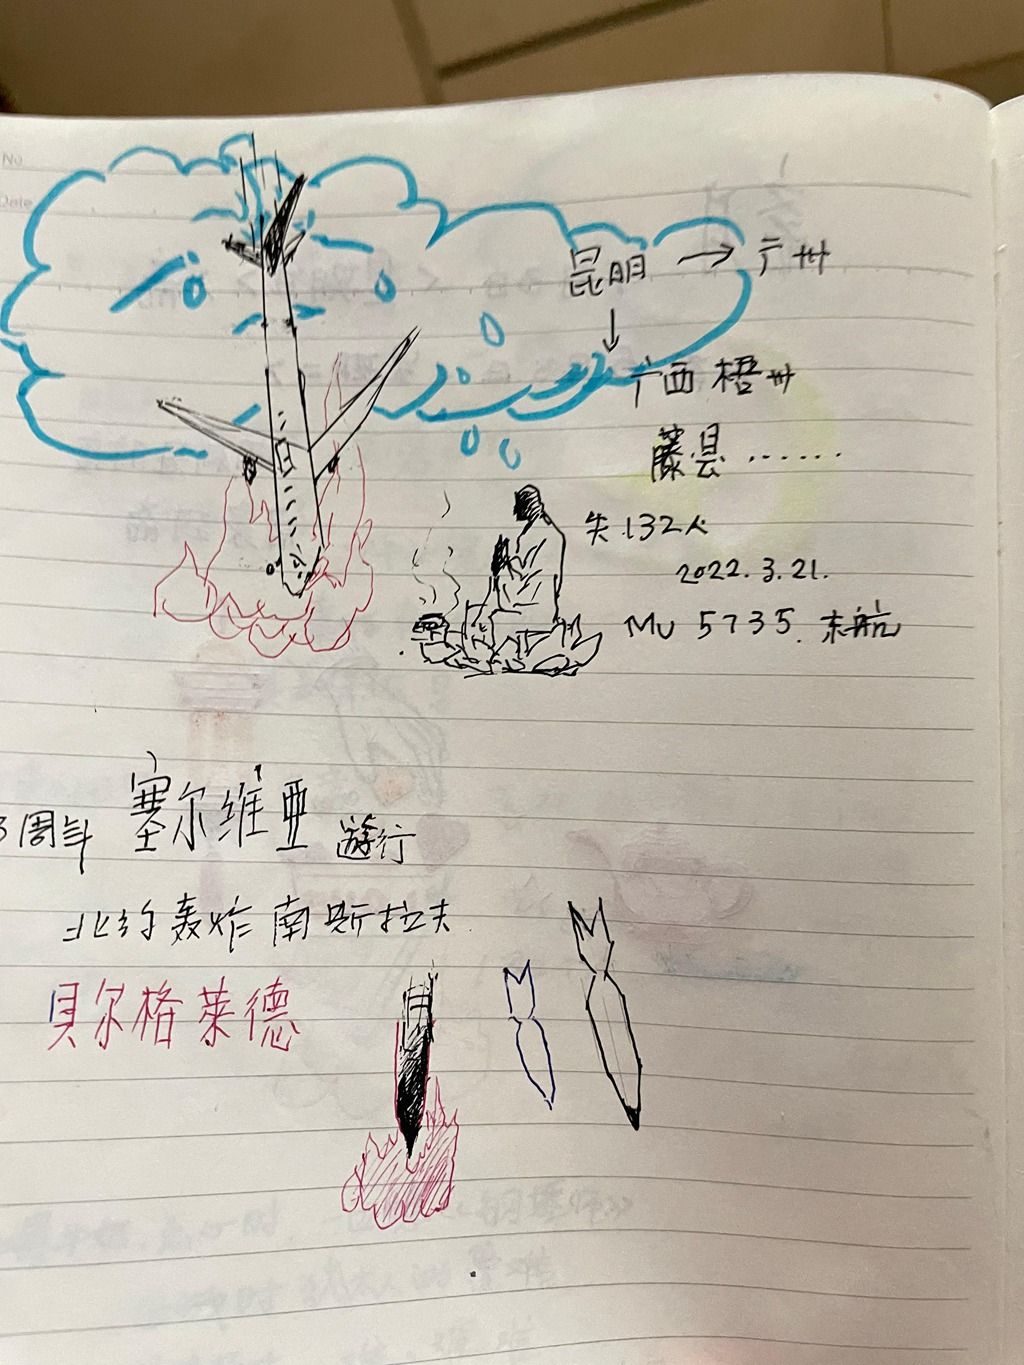 No
Date
昆明 → 广州
↓
广西 梧州
藤县 ......
失 132人
2022.3.21.
MU 5735. 东航
3周年 塞尔维亚 遊行
北约轰炸南斯拉夫
贝尔格莱德